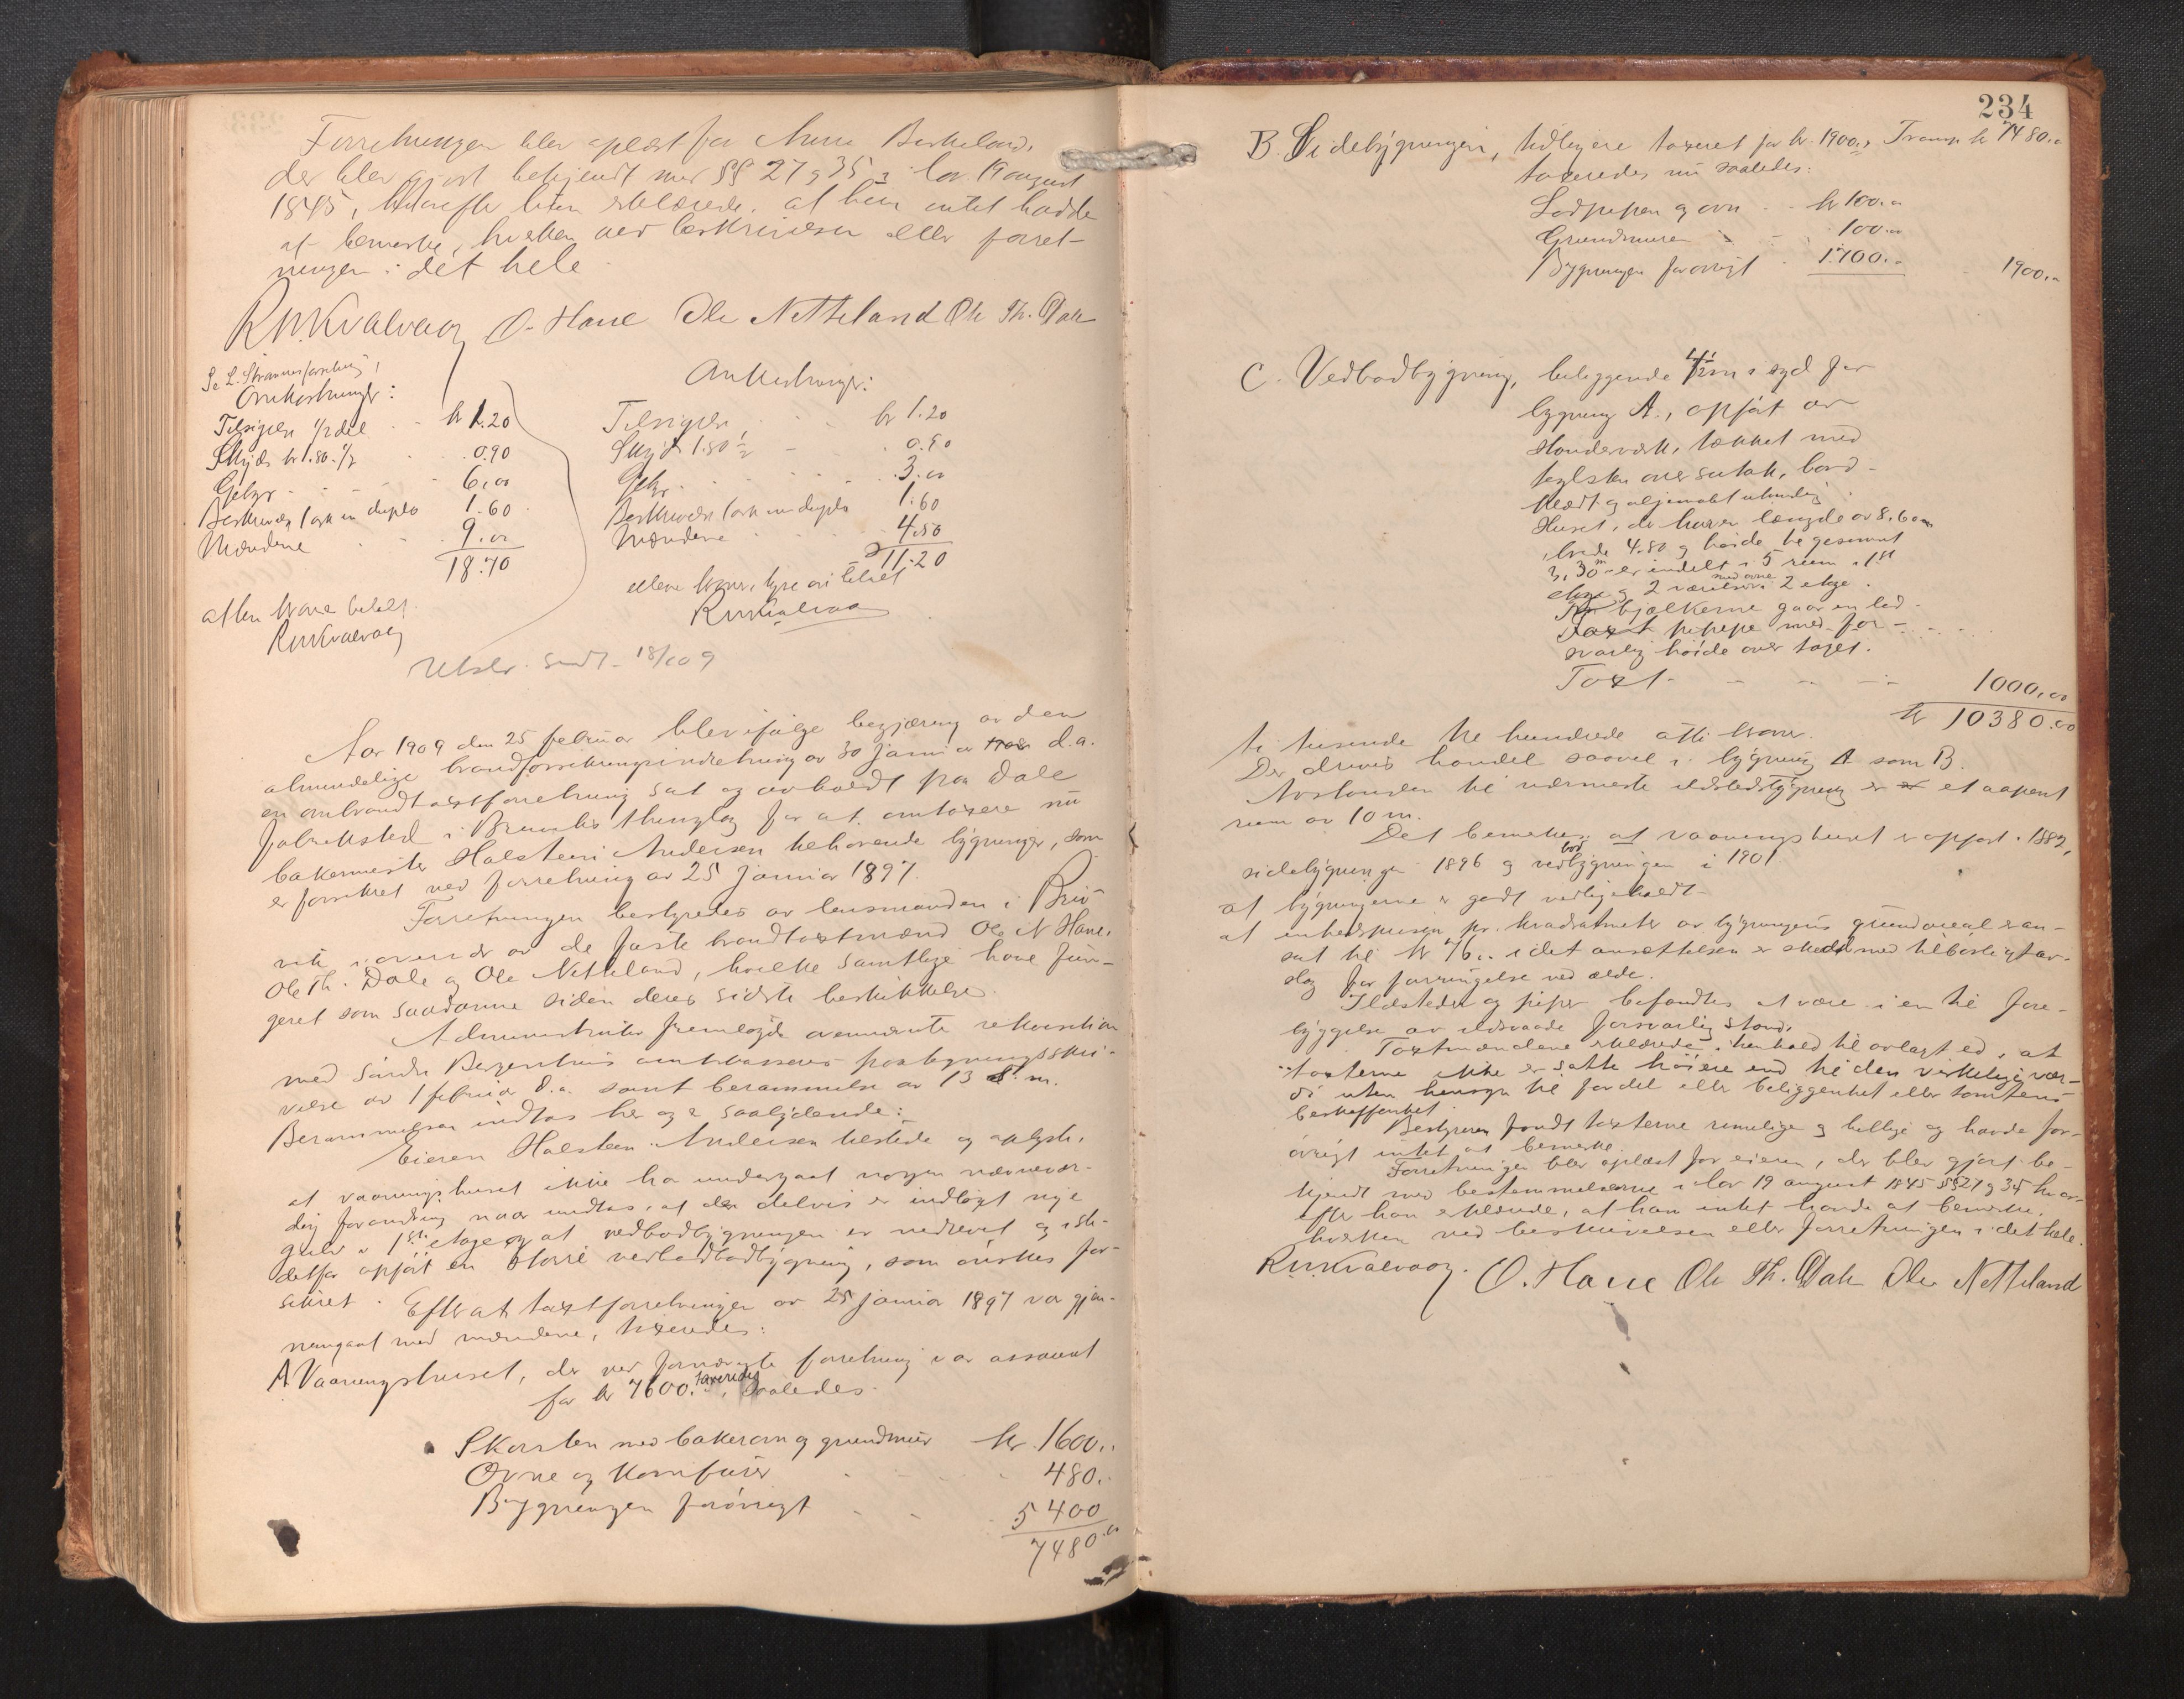 Forretningen blev oplæst for Anna Birkeland,
der blev gjort bekjendt med §§ 27 og 35 i lov 19 august
1845, hvorefter hun erklærede, at hun intet hadde
at bemerke, hverken ved beskrivelsen eller forret-
ningen i det hele.
R.N.Kvalvaag O. Haue Ole Netteland Ole Th. Dale
Omkostninger:
Tilsigelse 1/2 del kr 1.20
Skyds kr 1.80 1/2 0.90
Gebyr 6,00
Beskrivelse 1 ark in duplo 1.60
Mændene 9.00
18.70
atten kroner betalt.
RNKvalvaag
Omkostninger:
Tilsigelse kr 1.20
Skyds 1.80 1/2 0.90
Gebyr 3.00
Beskrivelse 1 ark in duplo 1.60
Mændene 4.50
11.20
elleve kroner, tyve øre betalt
RNKvalvaag
Utskr. sendt 18/10 09
Aar 1909 den 25 februar blev ifølge begjæring av den
almindelige brandforsikringsindretning av 30 januar d.a.
en ombrandtakstforretning sat og avholdt paa Dale
fabriksted i Bruviks thinglag for at omtaxere nu
bakermester Halstein Andersen tilhørende bygninger, som
er forsikret ved forretning av 25 januar 1897.
Forretningen bestyredes av lensmanden i Bru-
vik i overvær av de faste brandtakstmænd Ole N Haue,
Ole Th. Dale og Ole Netteland, hvilke samtlige have fun-
geret som saadanne siden deres sidste beskikkelse.
Administrator fremlagde ovennævnte rekvisition
med Søndre Bergenhus amts paategningsskri-
velse av 1 februar d.a. samt berammelse av 13 d.m.
Berammelsen indtas her og er saalydende:
Eieren Halstein Andersen tilstede og oplyste,
at vaaningshuset ikke har undergaat nogen nævnevær-
dig forandring naar undtas, at der delvis er indlagt nye
gulv i 1ste etage og at vedbodbygningen er nedrevet og iste-
detfor opført en større vedbodbygning, som ønskes for-
sikret. Efterat takstforretningen av 25 januar 1897 var gjen-
nemgaat med mændene, taxeredes:
A Vaaningshuset, der ved forrige forretning var assurert
for kr 7600.00, taxeredes saaledes
Skorsten med bakerovn og grundmur kr. 1600,,
Ovne og komfurer 480.
Bygningen forøvrigt 5400
7480.00
234
B. Sidebygningen, tidligere taxeret for kr. 1900,, Transp. kr 7480.00
taxeredes nu saaledes:
Lodpipen og ovn kr 100.00
Grundmuren 100.00
Bygningen forøvrigt 1700.00 1900,00
C. Vedbodbygning, beliggende i syd for
bygning A., opført av
tækket med
teglsten over sutak, bord-
klædt og oljemalt utvendig.
Huset, der haver længde av 8,60 m
bredde 4.80 og høide til gesimset
3,30 m er indelt i 5 rum i 1ste
etage og 2 værelser med ovne i 2 etage.
bjælkerne gaar en lod-
pipe med for-
svarlig høide over taget.
Taxt 1000,00
kr 10380.00
ti tusende tre hundrede otti kroner.
Der drives handel saavel i bygning A som B.
Avstanden til nærmeste ildstedsbygning er et aapent
rum av 10 m.
Det bemerkes at vaaningshuset er opført i 1882,
sidebygningen 1896 og vedbodbygningen i 1901.
at bygningerne er godt vedligeholdt
at enhedsprisen pr. kvadratmeter av bygningens grundareal er an-
sat til kr 76.. idet ansættelsen er skedd med tilbørlig av-
slag for forringelse ved ælde.
Ildsteder og piper befandtes at være i en til fore-
byggelse av ildsvaade forsvarlig stand.
Takstmændene erklærede i henhold til avlagt ed, at
taxterne ikke er satte høiere end til den virkelige vær-
di uten hensyn til fordel eller beliggenhet eller tomtens
beskaffenhet.
Bestyreren fandt taxterne rimelige og billige og havde for-
øvrigt intet at bemerke.
Forretningen blev oplæst for eieren, der blev gjort be-
kjendt med bestemmelserne i lov 19 august 1845 §§ 27 og 35 hvor-
efter han erklærede, at han intet havde at bemerke,
hverken ved beskrivelsen eller forretningen i det hele.
R.N.Kvalvaag. O. Haue Ole Th. Dale Ole Netteland